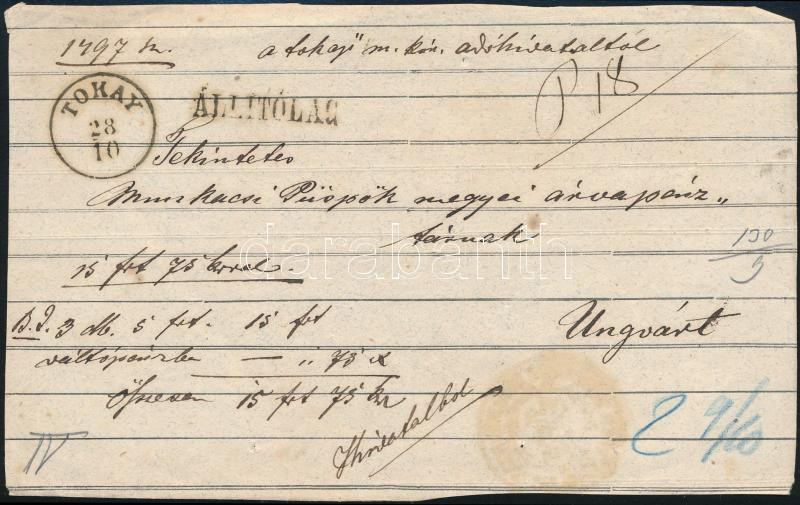 1797 sz. a tokaji m. kir. adóhivataltól
P 18
TOKAY
28
10
ÁLLITÓLAG
Tekintetes
Munkacsi Püspök megyei árvapénz„
tárnak
15 frt 75 krral.
130
5
B. J. 3 db. 5 frt. 15 frt
váltópénzben — „ 75 x
Összesen 15 frt 75 kr
Ungvárt
Hivatalból
IV
2 9/10
darabanth